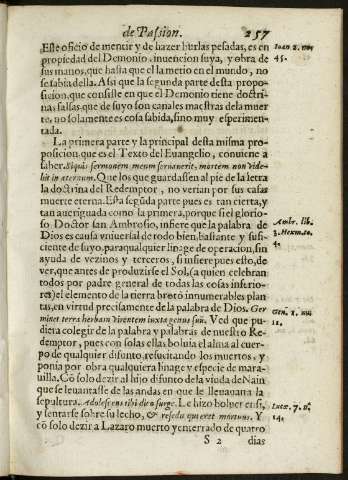 de Passion. 257
Este oficio de mentir y de hazer burlas pesadas, es en
propiedad del Demonio, inuencion suya, y obra de
sus manos, que hasta que el la metio en el mundo, no
se sabia della. Assi que la segunda parte desta propo-
sicion, que consiste en que el Demonio tiene doctri-
nas falsas, que de suyo son canales maestras de la muer
te, no solamente es cosa sabida, sino muy esperimen-
tada.
La primera parte y la principal desta misma pro-
posicion que es el Texto del Euangelio, conuiene a
saber. Siquis sermonem meum seruauerit, mortem non vide-
bit in aternum. Que los que guardassen al pie de la letra
la doctrina del Redemptor, no verian por sus casas
muerte eterna. Esta segũda parte pues es tan cierta, y
tan aueriguada como la primera, porque si el glorio-
so Doctor san Ambrosio, infiere que la palabra de
Dios es causa vniuersal de todo bien, bastante y sufi-
ciente de suyo, para qualquier linage de operacion, sin
ayuda de vezinos y terceros, si infiere pues esto, de
ver, que antes de produzirse el Sol, (a quien celebran
todos por padre general de todas las cosas inferio-
res) el elemento de la tierra brotò innumerables plan
tas, en virtud precisamente de la palabra de Dios. Ger
minet terra herbam Virentem iuxta genus suũ. Ved que pu-
diera colegir de la palabra y palabras de nuestro Re-
demptor, pues con solas ellas boluia el alma al cuer-
po de qualquier difunto, resucitando los muertos, y
ponia por obra qualquiera linage y especie de mara-
uilla. Cõ solo dezir al hijo difunto de la viuda de Nain
que se leuantasse de las andas en que le lleuauan a la
sepultura. Adolescens tibi dico surge. Le hizo boluer en si,
y sentarse sobre su lecho, & resedit qui erat mortuus. Y
cõ solo dezir a Lazaro muerto y enterrado de quatro
S 2 dias
Ioan. 2. nu.
45.
Ambr. lib.
3. Hexm. to.
4.
Gen. 1. nu
11.
Lucæ. 7. nº
14.